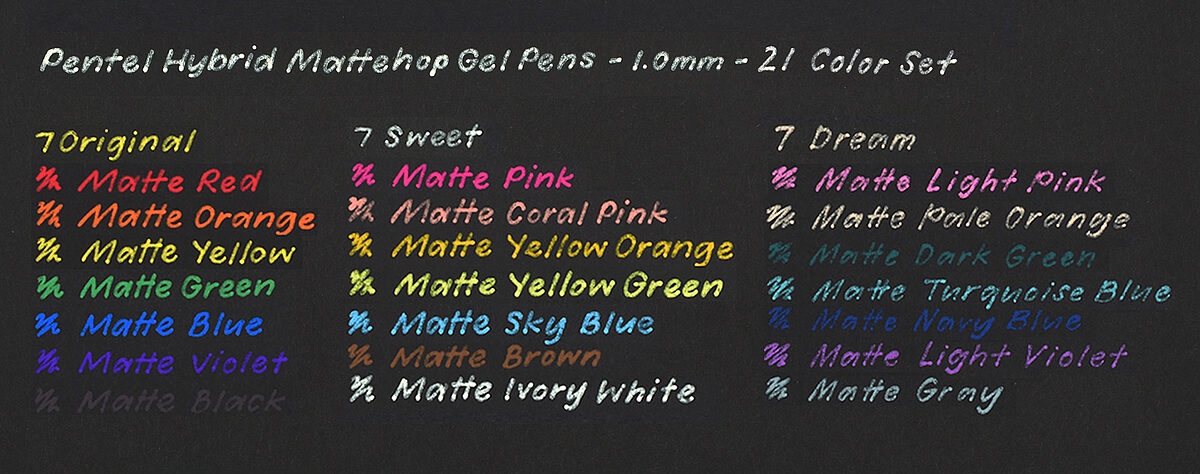 Pentel Hybrid Mattehop Gel Pens - 1.0mm - 21 Color Set
7 Original
Matte Red
Matte Orange
Matte Yellow
Matte Green
Matte Blue
Matte Violet
Matte Black
7 Sweet
Matte Pink
Matte Coral Pink
Matte Yellow Orange
Matte Yellow Green
Matte Sky Blue
Matte Brown
Matte Ivory White
7 Dream
Matte Light Pink
Matte Pale Orange
Matte Dark Green
Matte Turquoise Blue
Matte Navy Blue
Matte Light Violet
Matte Gray